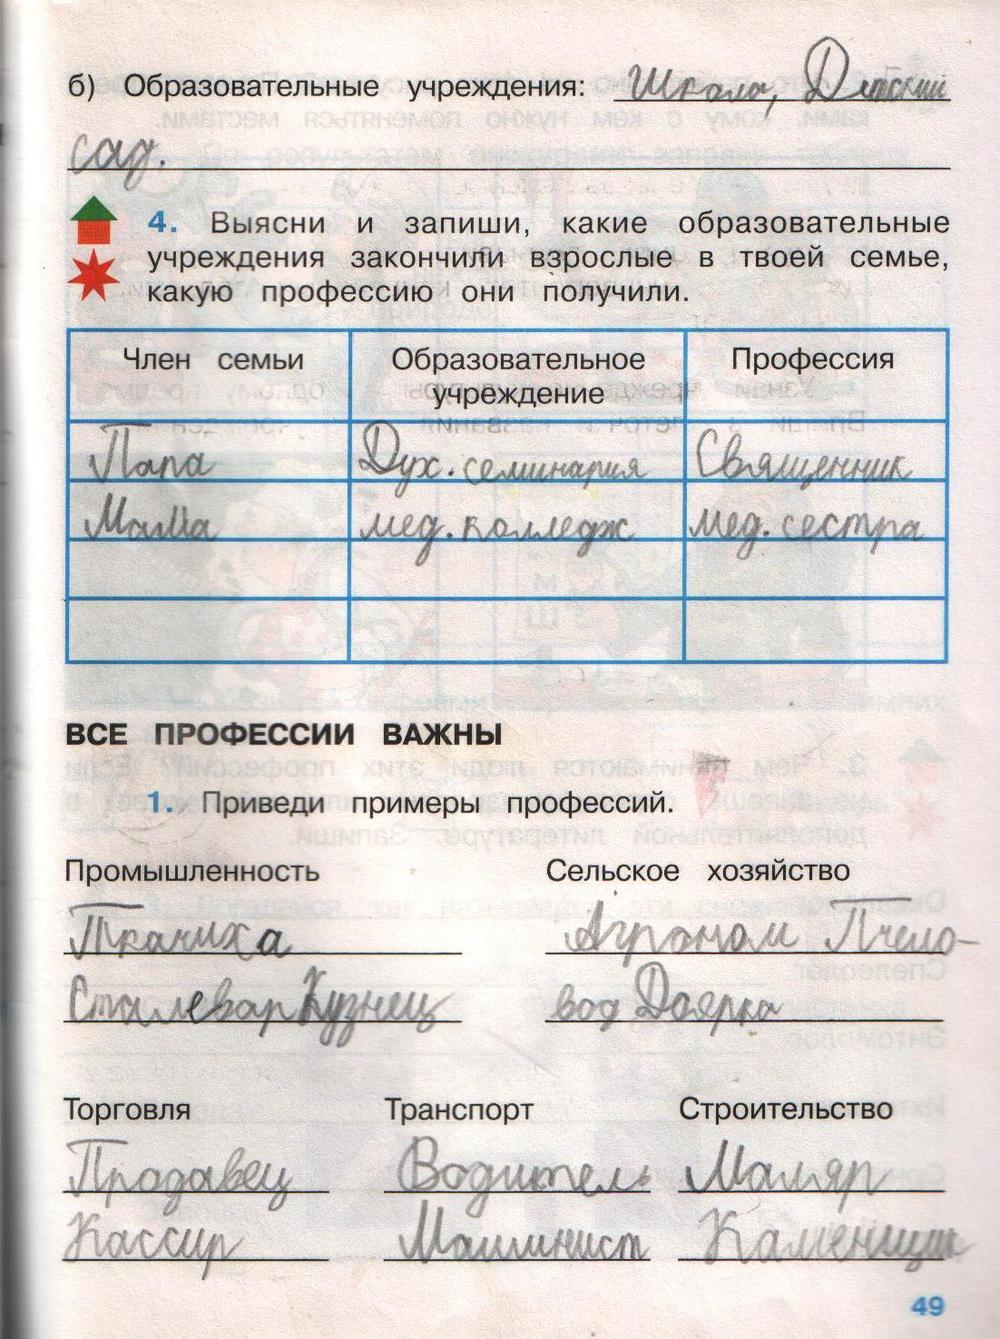 б) Образовательные учреждения: Школа, Детский
сад.
4. Выясни и запиши, какие образовательные
учреждения закончили взрослые в твоей семье,
какую профессию они получили.
Член семьи Образовательное учреждение Профессия
Папа Дух. семинария Священник
Мама мед. колледж мед. сестра
ВСЕ ПРОФЕССИИ ВАЖНЫ
1. Приведи примеры профессий.
Промышленность Сельское хозяйство
Ткачиха Агроном Пчело-
Сталевар Кузнец вод Доярка
Торговля Транспорт Строительство
Продавец Водитель Маляр
Кассир Машинист Каменщик
49